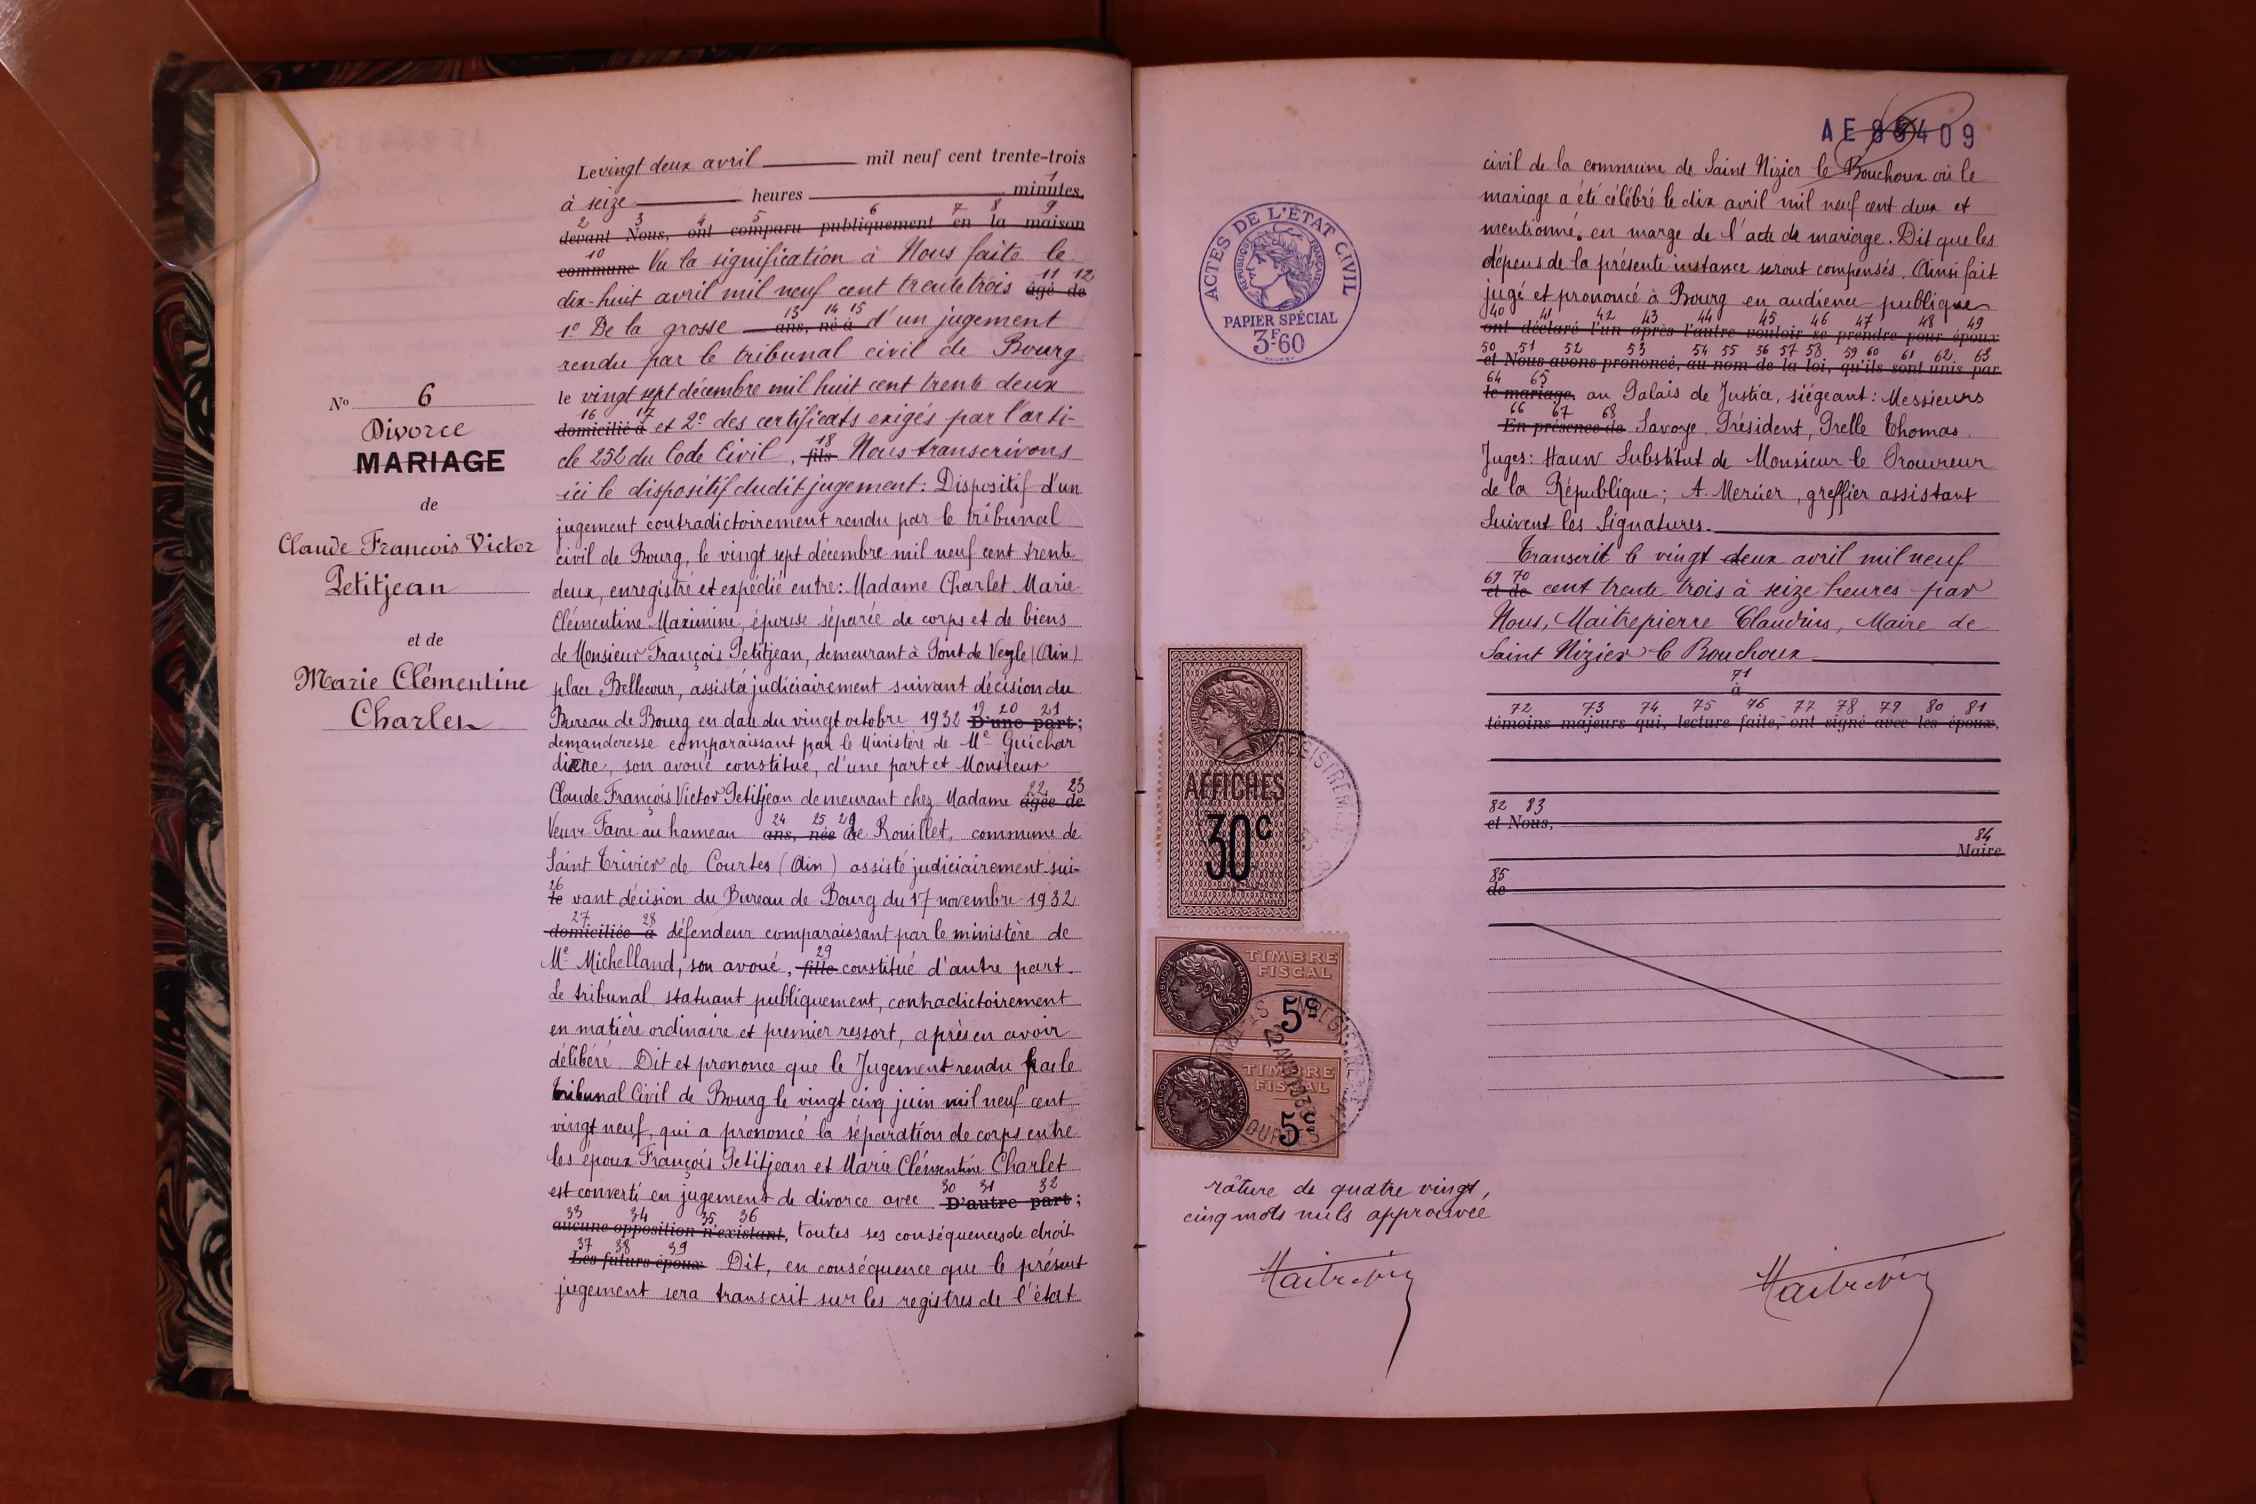 Le vingt deux avril mil neuf cent trente-trois
à seize heures minutes.
1
2 3 4 5 6 7 8 9
devant Nous, ont comparu publiquement en la maison
10
commune Vu la signification à Nous faite le
11 12
dix-huit avril mil neuf cent trente trois âgé de
13 14 15
1º De la grosse ans, né à d'un jugement
rendu par le tribunal civil de Bourg
le vingt sept décembre mil huit cent trente deux
16 17
domicilié à et 2º des certificats exigés par l'arti-
18
cle 252 du Code Civil, fils Nous transcrivons
ici le dispositif dudit jugement: Dispositif d'un
jugement contradictoirement rendu par le tribunal
civil de Bourg, le vingt sept décembre mil neuf cent trente
deux, enregistré et expédié entre: Madame Charlet Marie
Clémentine Maximine, épouse séparée de corps et de biens
de Monsieur François Petitjean, demeurant à Pont de Veyle (Ain)
place Bellecour, assistá judiciairement suivant décision du
19 20 21
Bureau de Bourg en date du vingt octobre 1932 D'une part;
demanderesse comparaissant par le Ministère de Me Guichar
dière, son avoué constitué, d'une part et Monsieur
22 23
Claude François Victor Petitjean demeurant chez Madame âgée de
24 25
Veuve Favre au hameau ans, née de Rouillet, commune de
Saint Trivier de Courtes (Ain) assisté judiciairement sui-
26
le vant décision du Bureau de Bourg du 17 novembre 1932
27 28
domiciliée à défendeur comparaissant par le ministère de
29
Me Michelland, son avoué, fille constitué d'autre part.
Le tribunal statuant publiquement, contradictoirement
en matière ordinaire et premier ressort, après en avoir
délibéré. Dit et prononce que le Jugement rendu par le
tribunal Civil de Bourg le vingt cinq juin mil neuf cent
vingt neuf, qui a prononcé la séparation de corps entre
les époux François Petitjean et Marie Clémentine Charlet
30 31 32
est converti en jugement de divorce avec D'autre part;
33 34 35 36
aucune opposition n'existant, toutes ses conséquences de droit
37 38 39
Les futurs époux Dit, en conséquence que le présent
jugement sera transcrit sur les registres de l'état
No 6
Divorce
MARIAGE
de
Claude François Victor
Petitjean
et de
Marie Clémentine
Charlet
AE 409
civil de la commune de Saint Nizier le Bouchoux où le
mariage a été célébré le dix avril mil neuf cent deux et
mentionné en marge de l'acte de mariage. Dit que les
dépens de la présente instance seront compensés. Ainsi fait
jugé et prononcé à Bourg en audience publique
40 41 42 43 44 45 46 47 48 49
ont déclaré l'un après l'autre vouloir se prendre pour époux
50 51 52 53 54 55 56 57 58 59 60 61 62 63
et Nous avons prononcé, au nom de la loi, qu'ils sont unis par
64 65
le mariage. au Palais de Justice, siégeant: Messieurs
66 67 68
En présence de Savoye, Président, Prelle Thomas
Juges: Hauw Substitut de Monsieur le Procureur
de la République; A. Mercier, greffier assistant
Suivent les Signatures.
Transcrit le vingt deux avril mil neuf
69 70
et de cent trente trois à seize heures par
Nous, Maitrepierre Claudius, Maire de
Saint Nizier le Bouchoux
71
à
72 73 74 75 76 77 78 79 80 81
témoins majeurs qui, lecture faite, ont signé avec les époux.
82 83
et Nous,
84
Maire
85
de
ACTES DE L'ÉTAT CIVIL
RÉPUBLIQUE FRANÇAISE
PAPIER SPÉCIAL
3F60
AFFICHES
30c
TIMBRE
FISCAL
5c
TIMBRE
FISCAL
5c
râture de quatre vingt,
cinq mots nuls approuvée